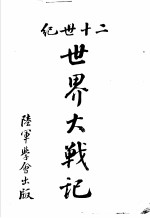 二十世紀
世界大戦記
陸軍學會出版